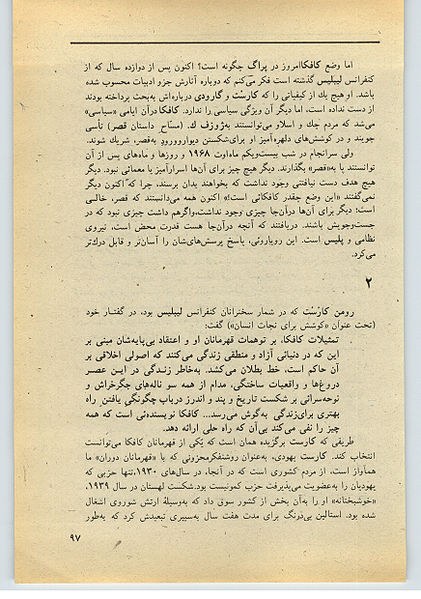 اما وضع کافکاامروز در پراگ چگونه است؟ اکنون پس از دوازده سال که از
کنفرانس لیبلیس گذشته است فکر می‌کنم که دوباره آثارش جزو ادبیات محسوب شده
باشد. او هیچ یك از کیفیاتی را که کارست و گارودی درباره‌اش به‌بحث پرداخته بودند
از دست نداده است، اما دیگر آن ویژگی سیاسی را ندارد. کافکادرآن ایامی «سیاسی»
می‌شد که مردم چك و اسلاو می‌توانستند به‌ژوزف ك. (مسّاح داستان قصر) تأسی
جویند و در کوشش‌های دلهره‌آمیز او برای‌شکستن دیواروورود به‌قصر، شریك شوند.
ولی سرانجام در شب بیست‌ویکم ماه‌اوت ۱۹۶۸ و روزها و ماه‌های پس از آن
توانستند پا به«قصر» بگذارند. دیگر هیچ چیز برای آن‌ها اسرارآمیز یا معمائی نبود. دیگر
هیچ هدف دست نیافتنی وجود نداشت که بخواهند بدان برسند، چرا که اکنون دیگر
نمی‌گفتند «این وضع چقدر کافکائی است!» اکنون همه می‌دانستند که قصر، خالی
است: دیگر برای آن‌ها درآن‌جا چیزی وجود نداشت،واگرهم داشت چیزی نبود که در
جست‌وجویش باشند. دریافتند که آنچه درآن‌جا هست قدرت محض است، نیروی
نظامی و پلیس است. این رویاروئی، پاسخ پرسش‌های‌شان را آسان‌تر و قابل درك‌تر
می‌کرد.
۲
رومن کارْست که در شمار سخنرانان کنفرانس لیبلیس بود، در گفتار خود
(تحت عنوان «کوشش برای نجات انسان») گفت:
تمثیلات کافکا، بر توهمات قهرمانان او و اعتقاد بی‌پایه‌شان مبنی بر
این که در دنیائی آزاد و منطقی زندگی می‌کنند که اصولی اخلاقی بر
آن حاکم است، خط بطلان می‌کشد. به‌خاطر زندگی در این عصر
دروغ‌ها و واقعیات ساختگی، مدام از همه سو ناله‌های جگرخراش و
نوحه‌سرائی بر شکست تاریخ و پند و اندرز درباب چگونگی یافتن راه
بهتری برای‌زندگی به‌گوش می‌رسد... کافکا نویسنده‌ئی است که همه
چیز را نفی می‌کند بی‌آن که راه حلی ارائه دهد.
طریقی که کارست برگزیده همان است که یکی از قهرمانان کافکا می‌توانست
انتخاب کند. کارست یهودی، به‌عنوان روشنفکرمحزونی که با «قهرمانان دوران» ما
هم‌آواز است، از مردم کشوری است که در آنجا، در سال‌های ۱۹۳۰،تنها حزبی که
یهودیان را به‌عضویت می‌پذیرفت حزب کمونیست بود.شکست لهستان در سال ۱۹۳۹،
«خوشبختانه» او را به‌آن بخش از کشور سوق داد که به‌وسیلهٔ ارتش شوروی اشغال
شده بود. استالین بی‌درنگ برای مدت هفت سال به‌سیبری تبعیدش کرد که به‌طور
۹۷